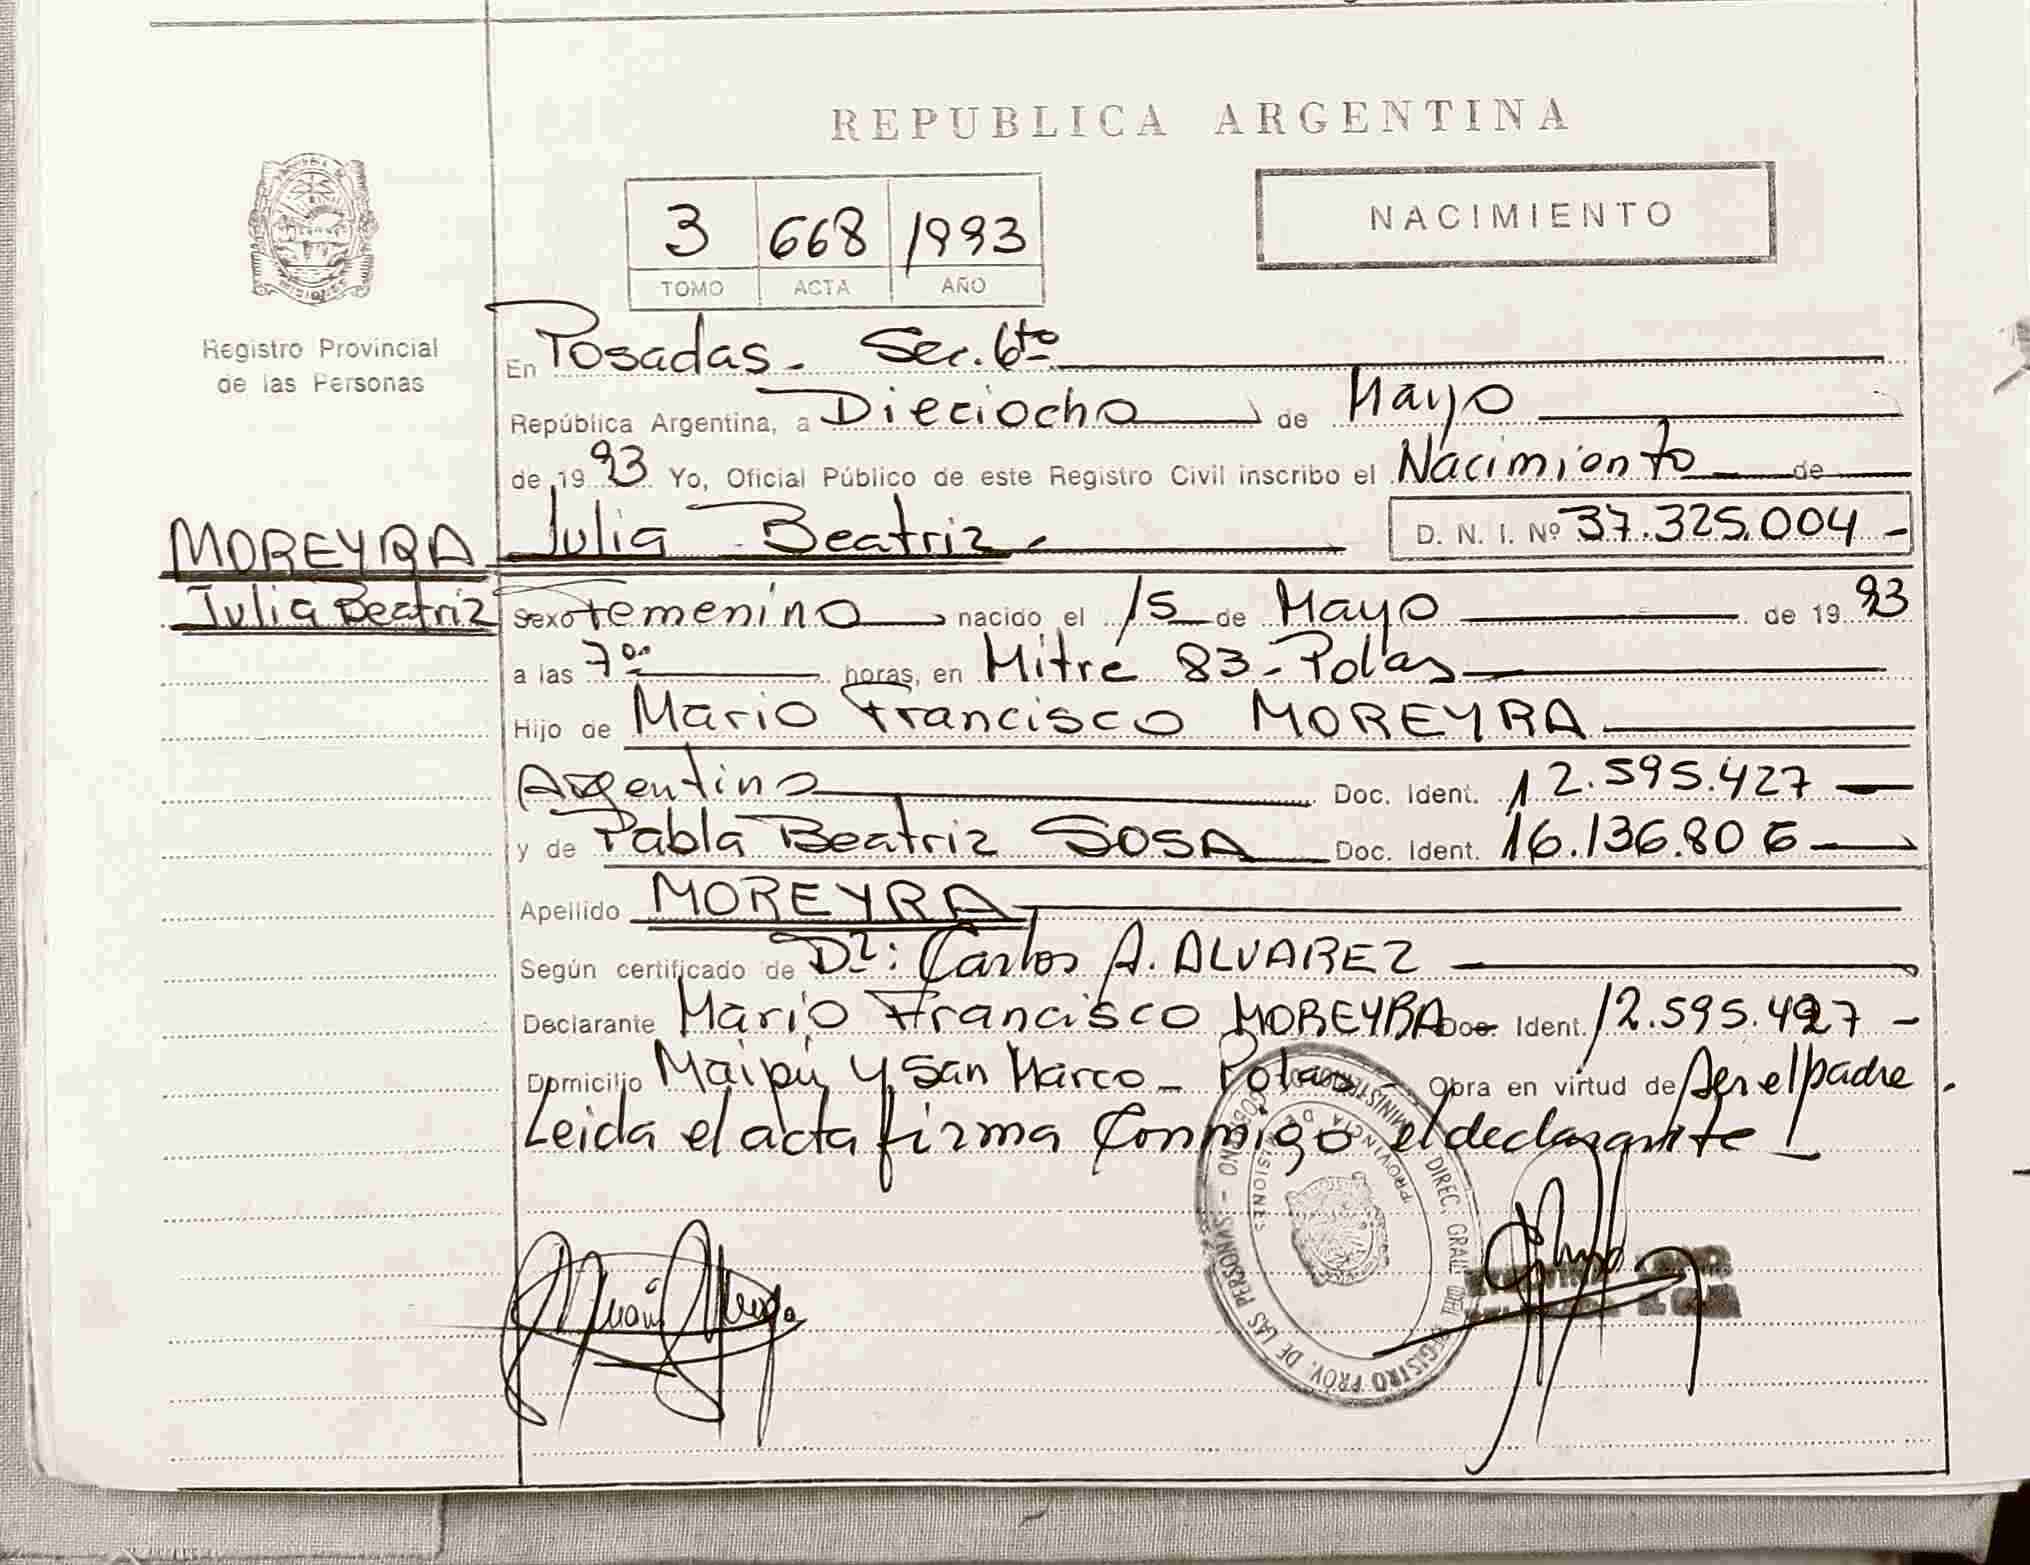 REPUBLICA ARGENTINA
NACIMIENTO
3 668 1993
TOMO ACTA AÑO
MISIONES
Registro Provincial
de las Personas
En Posadas - Sec. 6ta
República Argentina, a Dieciocho de Mayo
de 1993 Yo, Oficial Público de este Registro Civil inscribo el Nacimiento de
MOREYRA
Julia Beatriz
Julia Beatriz - D. N. I. Nº 37.325.004 -
Sexo Femenino nacido el 15 de Mayo de 1993
a las 7 00 horas, en Mitre 83 - Pdas
Hijo de Mario Francisco MOREYRA
Argentino Doc. Ident. 12.595.427
y de Pabla Beatriz SOSA Doc. Ident. 16.136.806
Apellido MOREYRA
Según certificado de Dr: Carlos A. ALVAREZ
Declarante Mario Francisco MOREYRA Doc. Ident. 12.595.427 -
Domicilio Maipú y San Marco - Pdas - Obra en virtud de ser el padre.
Leida el acta firma conmigo el declarante
DIREC. GRAL. DEL REGISTRO PROV. DE LAS PERSONAS - MINISTERIO DE GOBIERNO
PROVINCIA DE MISIONES